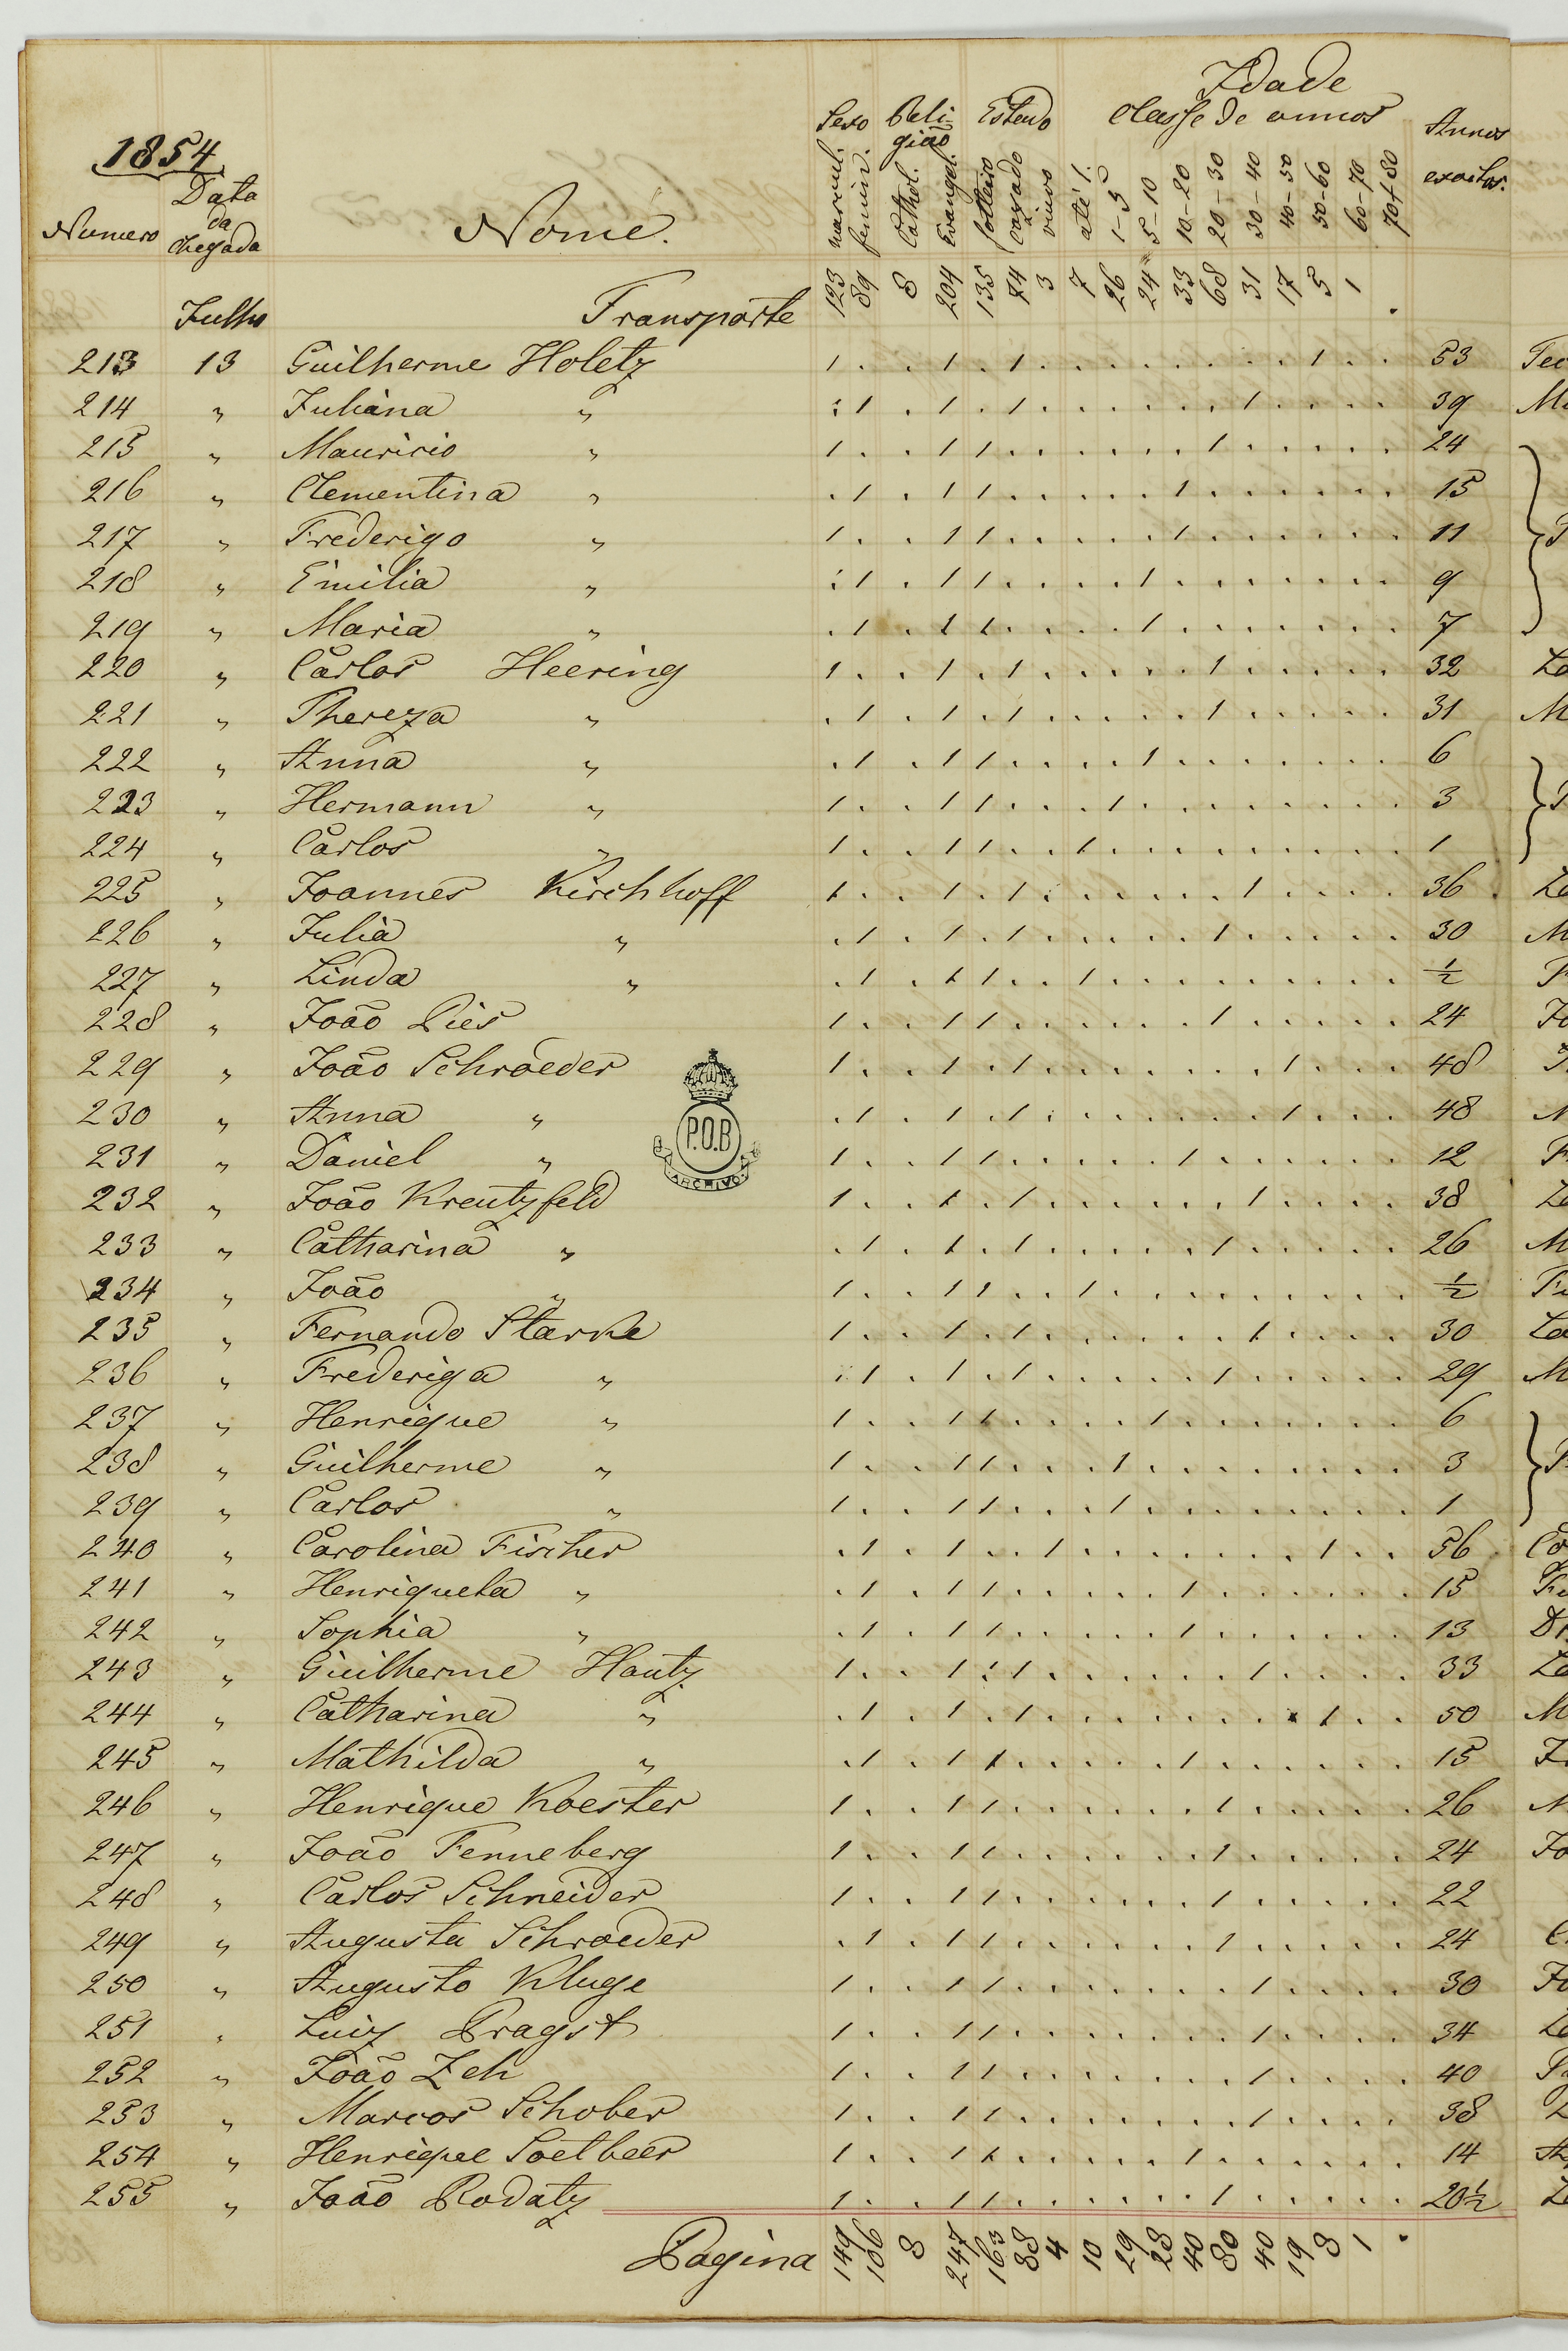 1854
Numero Data da Chegada Nome. Sexo mascul. feminin. Religião Cathol. Evangel. Estado solteiro cazado viuvo Idade Classe de annos até 1. 1-5 5-10 10-20 20-30 30-40 40-50 50-60 60-70 70+80 Annos exactos.
Julho Transporte 123 89 8 204 135 74 3 7 26 24 33 68 31 17 5 1 .
213 13 Guilherme Holetz 1 . . 1 . 1 . . . . . . . . 1 . . 53
214 " Juliana " . 1 . 1 . 1 . . . . . . 1 . . . . 39
215 " Mauricio " 1 . . 1 1 . . . . . . 1 . . . . . 24
216 " Clementina " . 1 . 1 1 . . . . . 1 . . . . . . 15
217 " Frederigo " 1 . . 1 1 . . . . . 1 . . . . . . 11
218 " Emilia " . 1 . 1 1 . . . . 1 . . . . . . . 9
219 " Maria " . 1 . 1 1 . . . . 1 . . . . . . . 7
220 " Carlos Heering 1 . . 1 . 1 . . . . . 1 . . . . . 32
221 " Thereza " . 1 . 1 . 1 . . . . . 1 . . . . . 31
222 " Anna " . 1 . 1 1 . . . . 1 . . . . . . . 6
223 " Hermann " 1 . . 1 1 . . . 1 . . . . . . . . 3
224 " Carlos " 1 . . 1 1 . . 1 . . . . . . . . . 1
225 " Joannes Kirchhoff 1 . . 1 . 1 . . . . . . 1 . . . . 36
226 " Julia " . 1 . 1 . 1 . . . . . 1 . . . . . 30
227 " Linda " . 1 . 1 1 . . 1 . . . . . . . . . ½
228 " João Pies 1 . . 1 1 . . . . . . 1 . . . . . 24
229 " João Schroeder 1 . . 1 . 1 . . . . . . . 1 . . . 48
230 " Anna " . 1 . 1 . 1 . . . . . . . 1 . . . 48
231 " Daniel " 1 . . 1 1 . . . . . 1 . . . . . . 12
P.O.B
ARCHIVO
232 " João Kreutzfeld 1 . . 1 . 1 . . . . . . 1 . . . . 38
233 " Catharina " . 1 . 1 . 1 . . . . . 1 . . . . . 26
234 " João " 1 . . 1 1 . . 1 . . . . . . . . . ½
235 " Fernando Starke 1 . . 1 . 1 . . . . . . 1 . . . . 30
236 " Frederiga " . 1 . 1 . 1 . . . . . 1 . . . . . 29
237 " Henrique " 1 . . 1 1 . . . . 1 . . . . . . . 6
238 " Guilherme " 1 . . 1 1 . . . 1 . . . . . . . . 3
239 " Carlos " 1 . . 1 1 . . . 1 . . . . . . . . 1
240 " Carolina Fischer . 1 . 1 . . 1 . . . . . . . 1 . . 56
241 " Henriqueta " . 1 . 1 1 . . . . . 1 . . . . . . 15
242 " Sophia " . 1 . 1 1 . . . . . 1 . . . . . . 13
243 " Guilherme Hautz 1 . . 1 . 1 . . . . . . 1 . . . . 33
244 " Catharina " . 1 . 1 . 1 . . . . . . . . 1 . . 50
245 " Mathilda " . 1 . 1 1 . . . . . 1 . . . . . . 15
246 " Henrique Koester 1 . . 1 1 . . . . . . 1 . . . . . 26
247 " João Tenneberg 1 . . 1 1 . . . . . . 1 . . . . . 24
248 " Carlos Schneider 1 . . 1 1 . . . . . . 1 . . . . . 22
249 " Augusta Schroeder . 1 . 1 1 . . . . . . 1 . . . . . 24
250 " Augusto Kluge 1 . . 1 1 . . . . . . . 1 . . . . 30
251 " Luiz Pragst 1 . . 1 1 . . . . . . . 1 . . . . 34
252 " João Zeh 1 . . 1 1 . . . . . . . 1 . . . . 40
253 " Marcos Schober 1 . . 1 1 . . . . . . . 1 . . . . 38
254 " Henrique Soetbeer 1 . . 1 1 . . . . . 1 . . . . . . 14
255 " João Rodatz 1 . . 1 1 . . . . . . 1 . . . . . 20½
Pagina 149 106 8 247 163 88 4 10 29 28 40 80 40 19 8 1 .